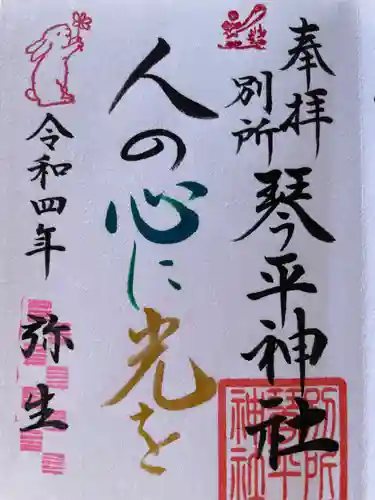 奉拝
別所
琴平神社
人の心に
光を
令和四年
弥生
別所
琴平
神社